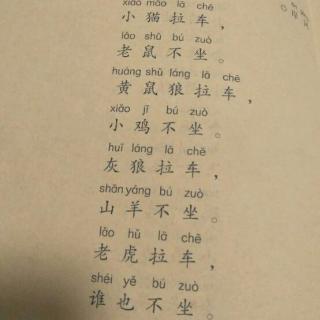 xiǎo māo lā chē
小猫拉车，
lǎo shǔ bú zuò
老鼠不坐。
huáng shǔ láng lā chē
黄鼠狼拉车，
xiǎo jī bú zuò
小鸡不坐。
huī láng lā chē
灰狼拉车，
shān yáng bú zuò
山羊不坐。
lǎo hǔ lā chē
老虎拉车，
shéi yě bú zuò
谁也不坐。